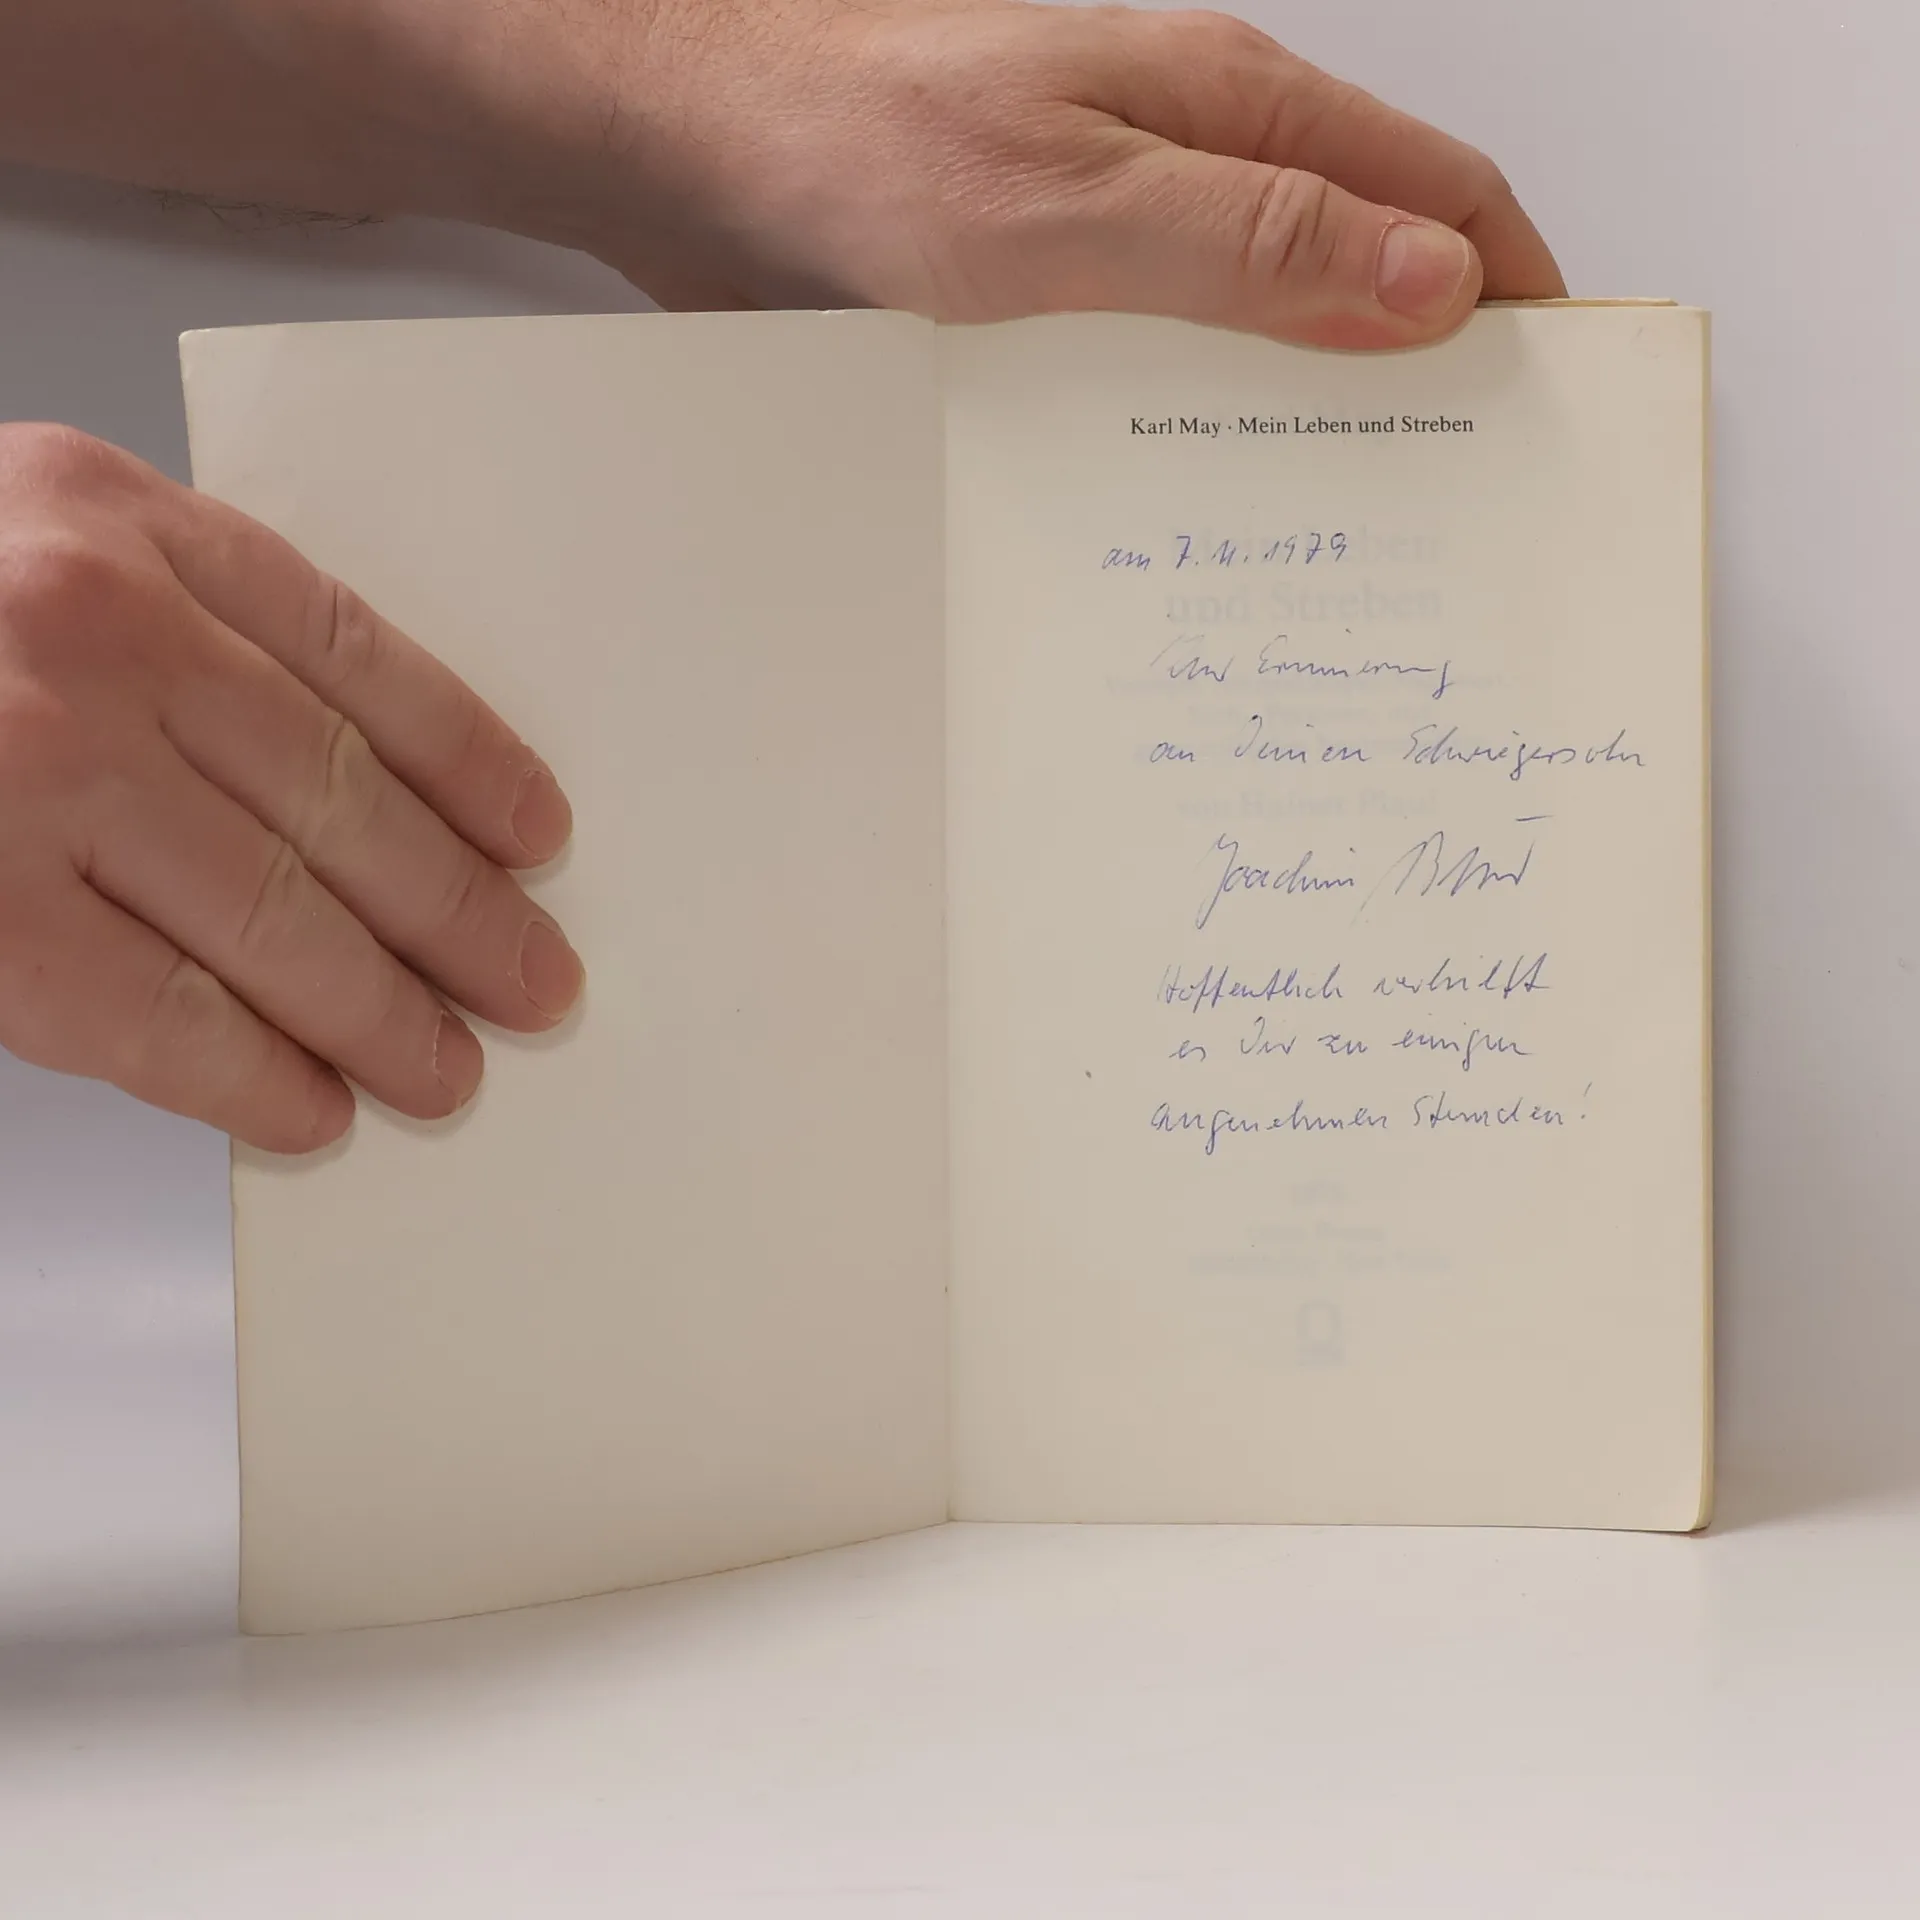 Karl May · Mein Leben und Streben
am 7.11.1979
Zur Erinnerung
an Deinen Schwiegersohn
Joachim
Hoffentlich verhilft
es Dir zu einigen
angenehmen Stunden!